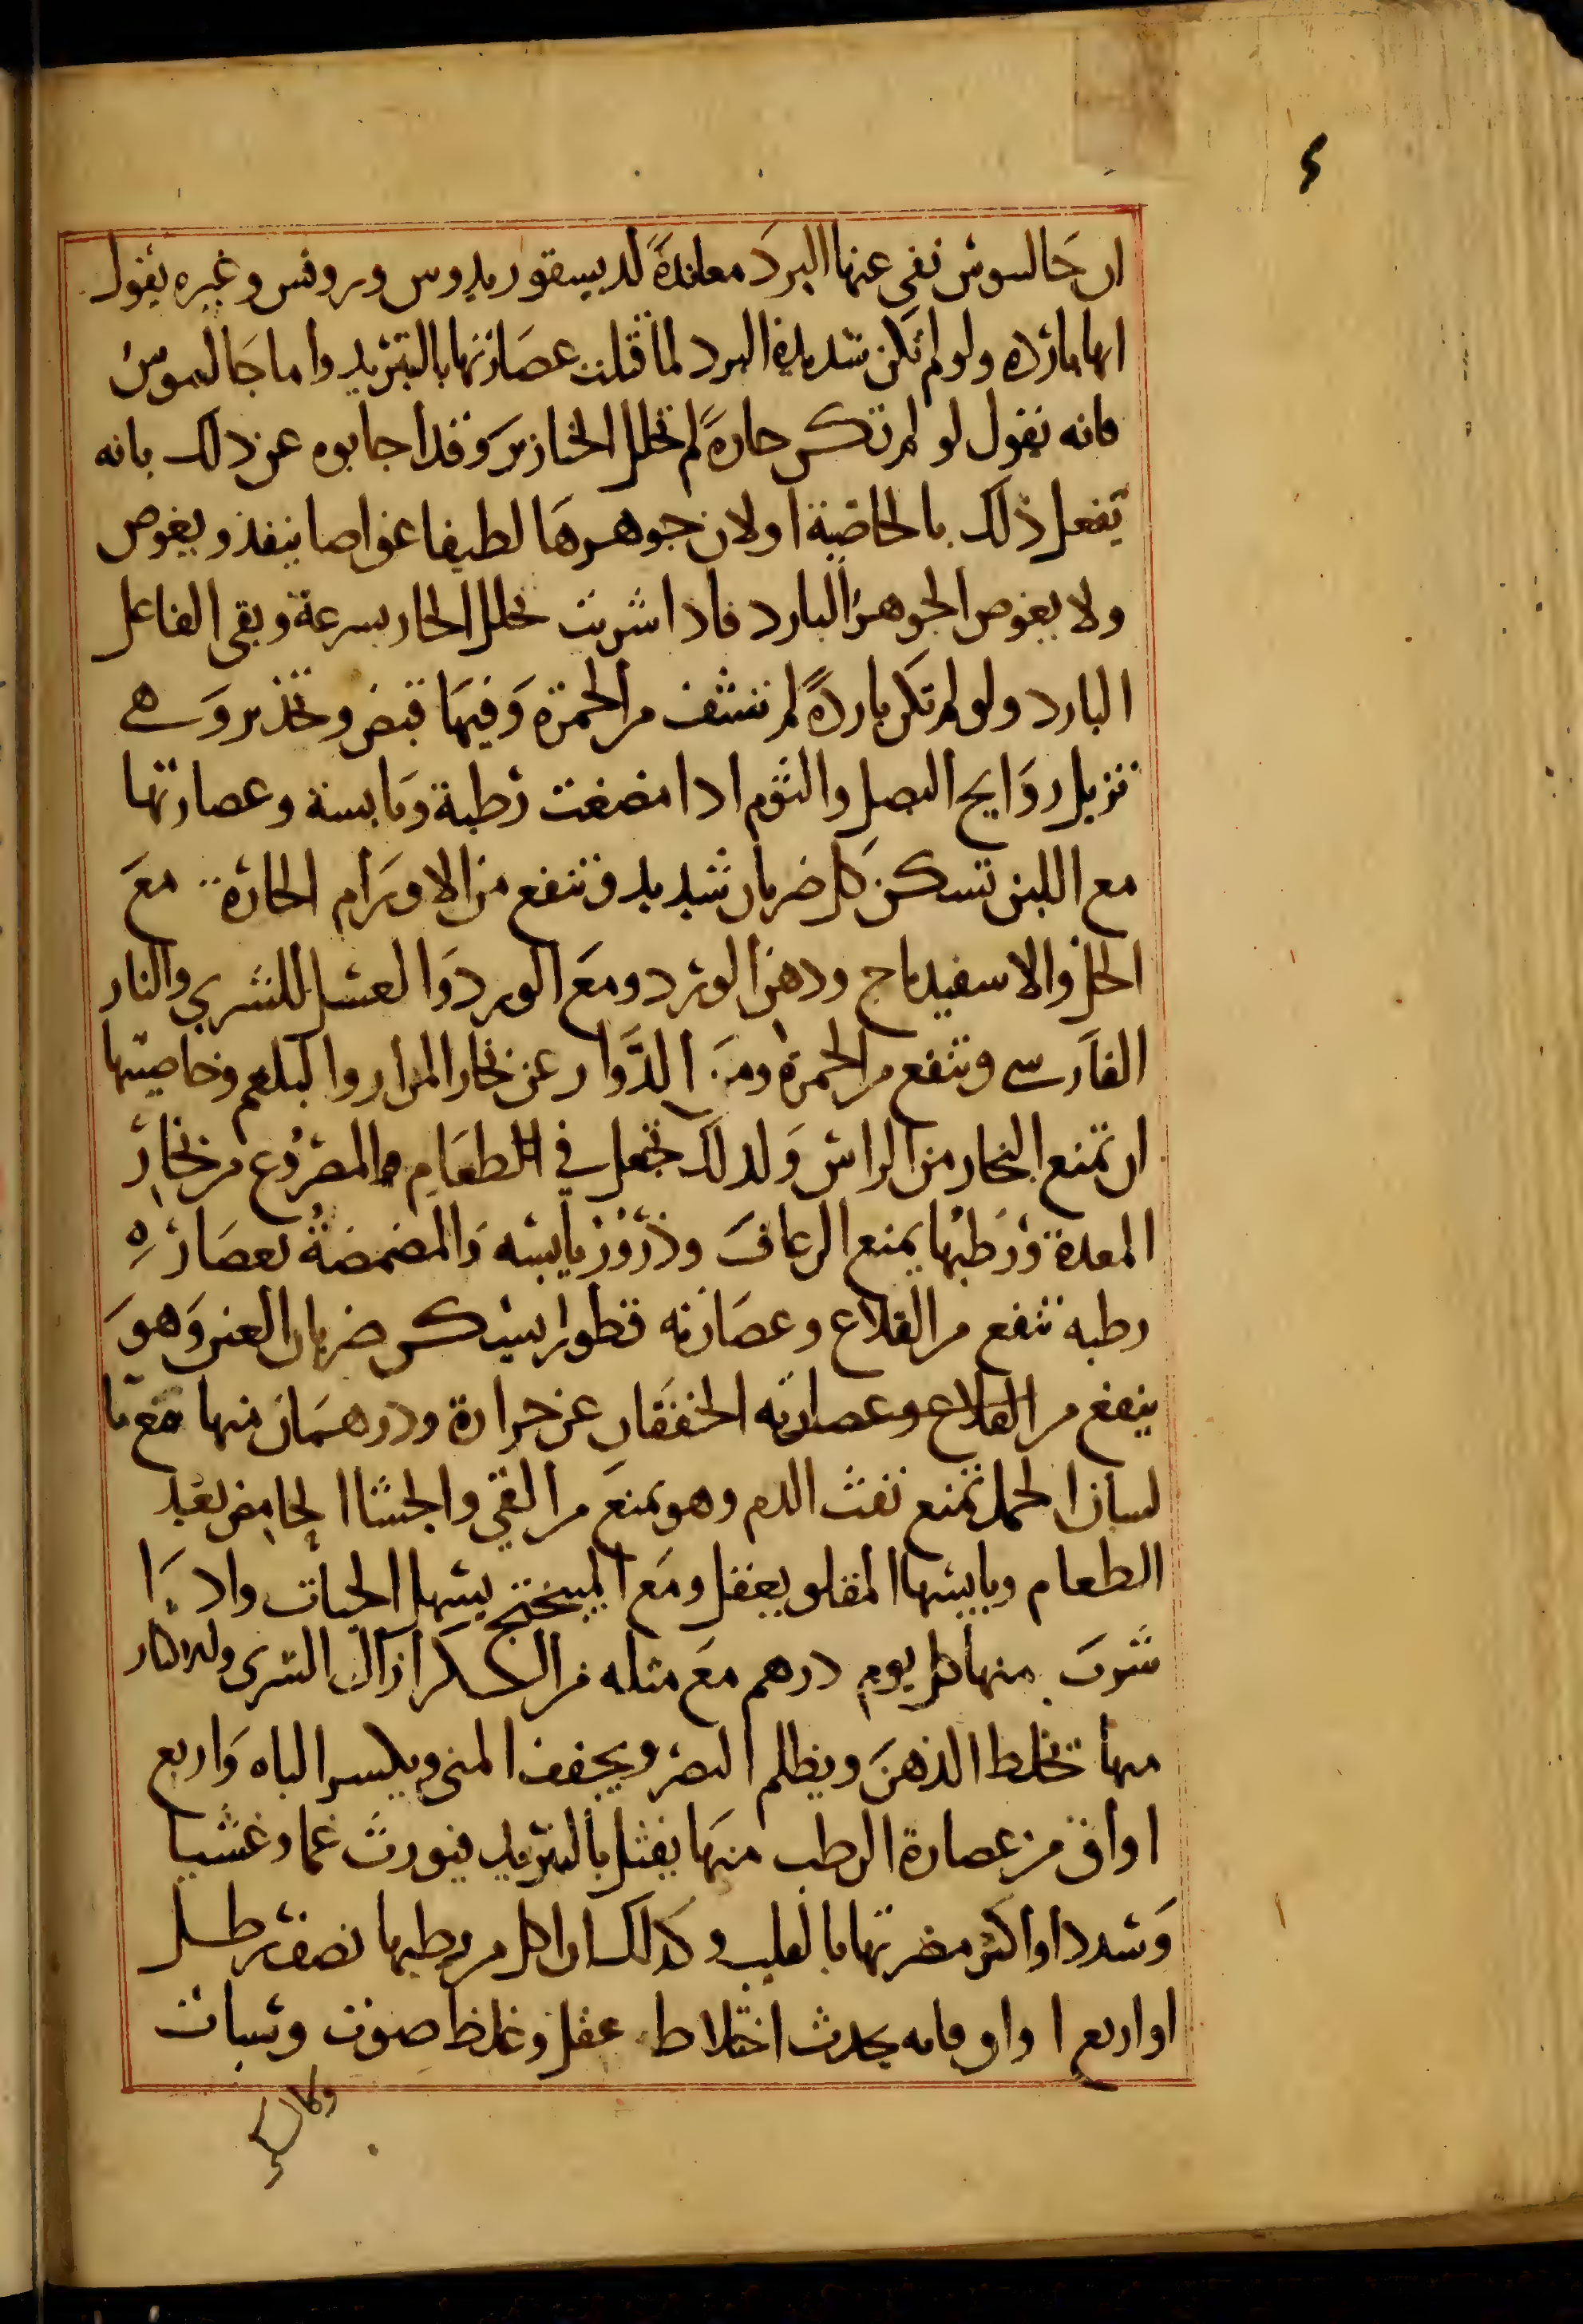 ٤
ان جالينوس نفى عنها البرد معاندة لديسقوريدوس وروفس وغيره يقول
انها باردة ولو لم تكن شديدة البرد لما قتلت عصارتها بالتبريد واما جالينوس
فانه يقول لو لم تكن حارة لم تحلل الخنازير وقد اجابوه عن ذلك بانه
يفعل ذلك بالخاصية او لان جوهرها لطيفا غواصا ينفذ ويغوص
ولا يغوص الجوهر البارد فاذا شربت تحلل الحار بسرعة وبقى الفاعل
البارد ولو لم تكن باردة لم تشف من الحمرة وفيها قبض وتخدير وهي
تزيل روايح البصل والثوم اذا مضغت رطبة ويابسة وعصارتها
مع اللبن تسكن كل ضربان شديد وتنفع من الاورام الحارة مع
الخل والاسفيداج ودهن الورد ومع الورد والعسل للشري والنار
الفارسي وتنفع من الحمرة ومن الدوار عن بخار المرار والبلغم وخاصيتها
ان تمنع البخار من الراس ولذلك تجعل في الطعام والمصروع من بخار
المعدة ورطبها يمنع الرعاف وذرور يابسه والمضمضة بعصاره
رطبه تنفع من القلاع وعصارته قطورا يسكن ضربان العين وهو
ينفع من القلاع وعصارته الخفقان عن حرارة ودرهمان منها مع ما
لسان الحمل تمنع نفث الدم وهو يمنع من القي والجشا الحامض بعد
الطعام ويابسها المقلو يعقل ومع الميبختج يسهل الحيات واذا
شرب منها كل يوم درهم مع مثله من السكر ازال الشرى والاكثار
منها تخلط الذهن ويظلم البصر ويجفف المنى ويكسر الباه واربع
اواق من عصارة الرطب منها يقتل بالتبريد فيورث غما وغشيا
وشددا واكثر مضرتها بالقلب وكذلك ان اكل من رطبها نصف رطل
او اربع اواق فانه يحدث اختلاط عقل وغلظ صوت وسبات